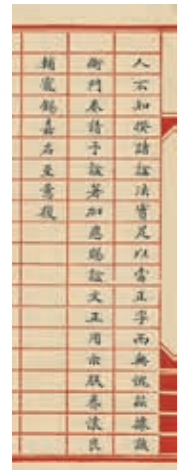 人不知揆諸諡法實足以當正字而無愧茲據該
衙門奏請予諡著加恩賜諡文正用示朕眷懷良
輔寵錫嘉名至意